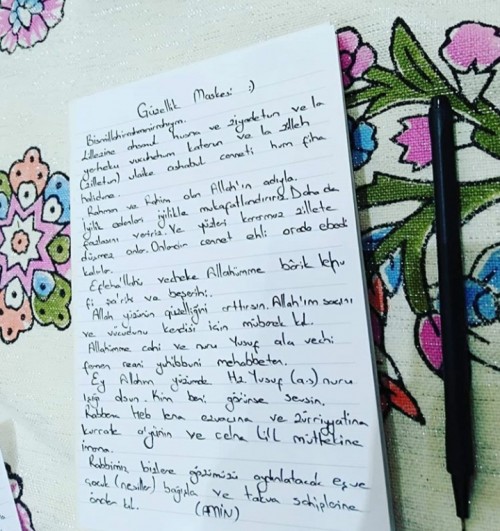 Güzellik Maskesi :)
Bismillahirrahmanirrahıym.
Lillezine ahsenul husna ve ziyadetun ve la
yerheku vucuhehum katerun ve la zilleh
(zilletun) ulaike ashabul cenneti hum fiha
halidune.
Rahman ve Rahim olan Allah'ın adıyla.
İyilik edenleri iyilikle mükafatlandırırız. Daha da
fazlasını veririz. Ve yüzleri kararmaz zillete
düşmez onlar. Onlardır cennet ehli orada ebedi
kalırlar.
Eflehallahü vecheke Allahümme bârik lehu
fi şa'rihi ve beşerihi.
Allah yüzünün güzelliğini arttırsın. Allah'ım saçını
ve vücudunu kendisi için mübarek kıl.
Allahümme cahi ve nuru Yusuf ala vechi
femen reani yuhibbuni mehabbeten.
Ey Allahım yüzümde Hz Yusuf (a.s) nuru
Işığı olsun. Kim beni görünse sevsin.
Rabbena Heb lena ezvacina ve zürriyyatina
kurrate a'yinin ve celna lil müttekine
imama.
Rabbimiz, bizlere gözümüzü aydınlatacak eş ve
çocuk (nesiller) bağışla ve takva sahiplerine
önder kıl. (AMİN)